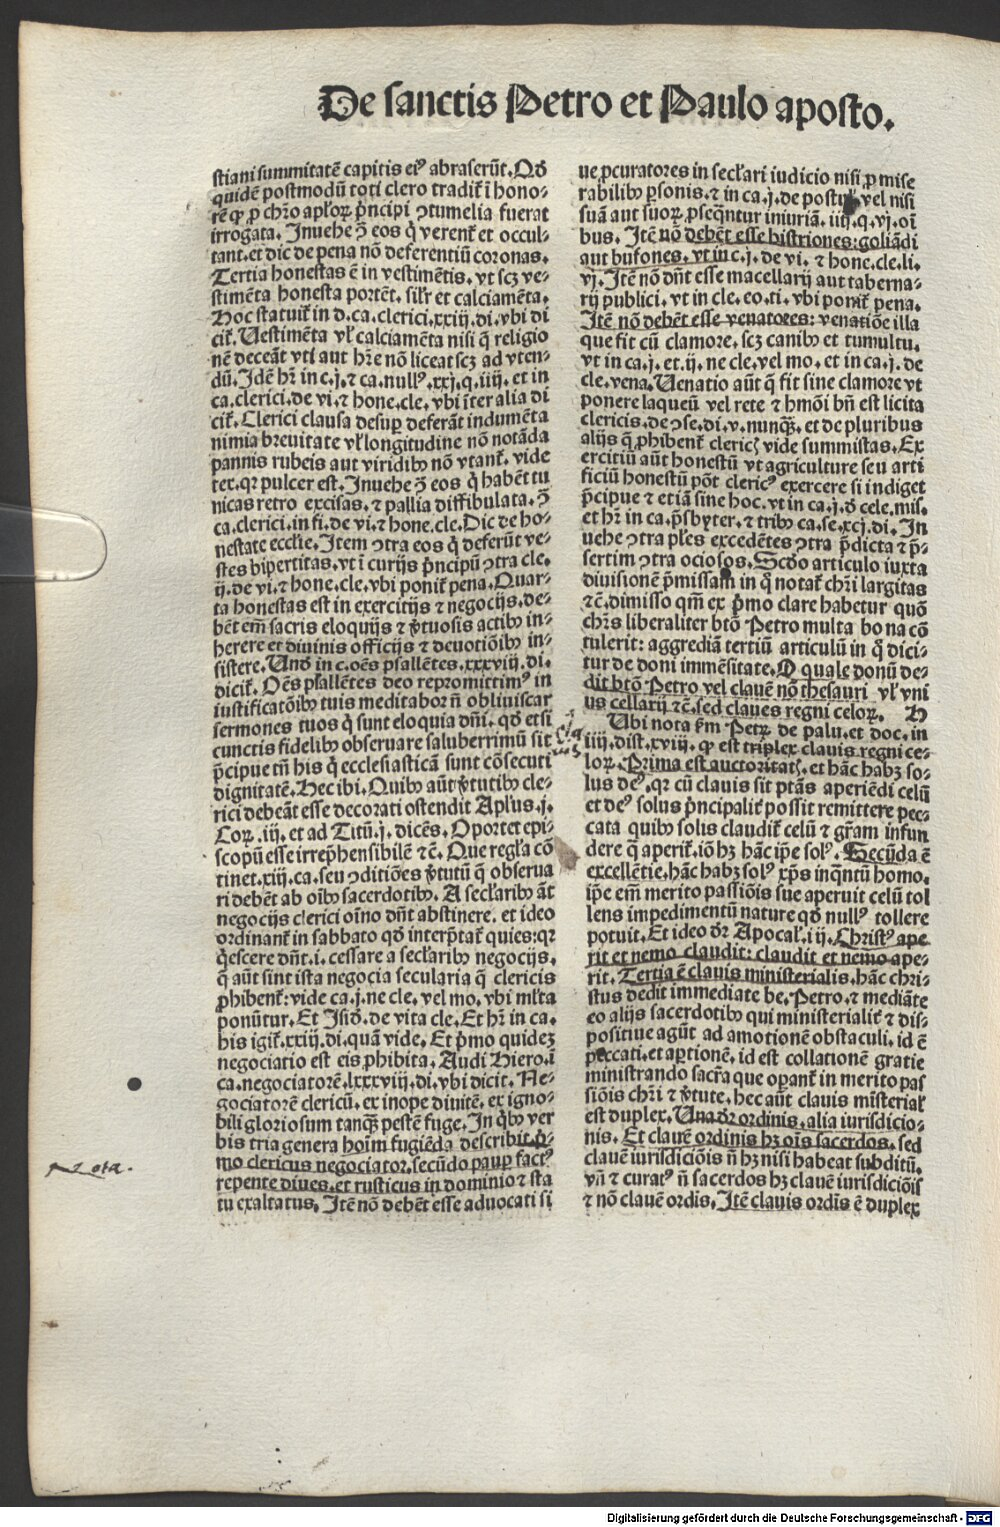 De sanctis Petro et Paulo aposto.
stiani summitatē capitis eiꝰ abraserūt. Qđ
quidē postmodū toti clero tradit᷑ ī hono-
rē ꝙ ꝓ chr̄o apl̓oꝝ p̄ncipi ꝯtumelia fuerat
irrogata. Inuehe ꝯ̄ eos q̇ verent᷑ et occul-
tant. et dic de pena nō deferentiū coronas.
Tertia honestas ē in vestimētis. vt scꝫ ve-
stimēta honesta portēt. sil̓r et calciamēta.
Hoc statuit᷑ in d. ca. clerici. xxiij. di. vbi di
cit᷑. Uestimēta vl̓ calciamēta nisi q̄ religio
nē deceāt vti aut hr̄e nō liceat scꝫ ad vten-
dū. Idē hr̄ in c. j. ⁊ ca. nullꝰ. xxj. q. iiij. et in
ca. clerici. de vi. ⁊ hone. cle. vbi īter alia di
cit᷑. Clerici clausa desuꝑ deferāt indumēta
nimia breuitate vl̓ longitudine nō notāda
pannis rubeis aut viridibꝰ nō vtant᷑. vide
tex. qꝛ pulcer est. Inuehe ꝯ̄ eos q̇ habēt tu
nicas retro excisas. ⁊ pallia diffibulata. ꝯ̄
ca. clerici. in fi. de vi. ⁊ hone. cle. Dic de ho-
nestate eccl̓ie. Item ꝯtra eos q̇ deferūt ve-
stes bipertitas. vt ī curijs p̄ncipū ꝯtra cle.
ij. de vi. ⁊ hone. cle. vbi ponit᷑ pena. Quar-
ta honestas est in exercitijs ⁊ negocijs. de-
bēt em̄ sacris eloquijs ⁊ v̓tuosis actibꝰ in-
herere et diuinis officijs ⁊ deuotiōibꝰ in-
sistere. Un̄ in c. oēs psallētes. xxxviij. di.
dicit᷑. Oēs psallētes deo repromittimꝰ in
iustificatōibꝰ tuis meditabor n̄ obliuiscar
sermones tuos q̇ sunt eloquia dn̄i. qđ etsi
cunctis fidelibꝰ obseruare saluberrimū sit
p̄cipue tn̄ his q̇ ecclesiasticā sunt cōsecuti
dignitatē. Hec ibi. Quibꝰ aūt v̓tutibꝰ cle-
rici debeāt esse decorati ostendit Apl̓us. j.
Coꝝ. iij. et ad Titū. j. dicēs. Oportet epi-
scopū esse irrep̄hensibilē ⁊c̄. Que regl̓a cō
tinet. xiij. ca. seu ꝯditiōes v̓tutū q̄ obserua
ri debēt ab oībꝰ sacerdotibꝰ. A secl̓aribꝰ āt
negocijs clerici oīno dn̄t abstinere. et ideo
ordinant᷑ in sabbato qđ interp̄tat᷑ quies: qꝛ
q̇escere dn̄t. i. cessare a secl̓aribꝰ negocijs.
q̄ aūt sint ista negocia secularia q̄ clericis
ꝓhibent᷑: vide ca. j. ne cle. vel mo. vbi ml̓ta
ponūtur. Et Isiđ. de vita cle. Et hr̄ in ca.
his igit᷑. xxiij. di. quā vide. Et p̄mo quidez
negociatio est eis ꝓhibita. Audi Hiero. ī
ca. negociatorē. lxxxviij. di. vbi dicit. Ne-
gociatorē clericū. ex inope diuitē. ex igno-
bili gloriosum tanqꝫ pestē fuge. In q̇bꝰ ver
bis tria genera hoīm fugiēda describit. p̄-
mo clericus negociator. secūdo pauꝑ factꝰ
repente diues. et rusticus in dominio ⁊ sta
tu exaltatus. Itē nō debēt esse aduocati si
Nota.
ue ꝓcuratores in secl̓ari iudicio nisi ꝓ mise
rabilibꝰ ꝑsonis. ⁊ in ca. j. de postul̓. vel nisi
suā aut suoꝝ ꝓseqūntur iniuriā. iiij. q. vj. oī
bus. Itē nō debēt esse histriones: goliādi
aut bufones. vt in c. j. de vi. ⁊ hone. cle. li.
vj. Itē nō dn̄t esse macellarij aut taberna-
rij publici. vt in cle. eo. ti. vbi ponit᷑ pena.
Itē nō debēt esse venatores: venatiōe illa
que fit cū clamore. scꝫ canibꝰ et tumultu.
vt in ca. j. et. ij. ne cle. vel mo. et in ca. j. de
cle. vena. Uenatio aūt q̄ fit sine clamore vt
ponere laqueū vel rete ⁊ hmōi bn̄ est licita
clericis. de ꝯse. di. v. nunqꝫ. et de pluribus
alijs q̄ ꝓhibent᷑ clericis vide summistas. Ex
ercitiū aūt honestū vt agriculture seu arti
ficiū honestū pōt clericꝰ exercere si indiget
p̄cipue ⁊ etiā sine hoc. vt in ca. j. đ cele. mis.
et hr̄ in ca. p̄sbyter. ⁊ tribꝰ ca. se. xcj. di. In
uehe ꝯtra pl̓es excedētes ꝯtra p̄dicta ⁊ p̄-
sertim ꝯtra ociosos. Scđo articulo iuxta
diuisionē p̄missam in q̇ notat᷑ chr̄i largitas
⁊c̄. dimisso qm̄ ex p̄mo clare habetur quō
chr̄s liberaliter btō Petro multa bona cō
tulerit: aggrediā tertiū articulū in q̇ dici-
tur de doni immēsitate. O quale donū de-
dit btō Petro vel clauē nō thesauri vl̓ vni
us cellarij ⁊c̄. sed claues regni celoꝝ. H
Ubi nota s̄m Petꝝ de palu. et doc. in
iiij. dist. xviij. ꝙ est triplex clauis regni ce-
loꝝ. Prima est auctoritatis. et hāc habꝫ so-
lus deꝰ. qꝛ cū clauis sit ptās aperiēdi celū
et deꝰ solus p̄ncipalit᷑ possit remittere pec-
cata quibꝰ solis claudit᷑ celū ⁊ gr̄am infun
dere q̄ aperit᷑. iō hꝫ hāc ip̄e solꝰ. Secūda ē
excellētie. hāc habꝫ solꝰ xp̄s inq̄ntū homo.
ip̄e em̄ merito passiōis sue aperuit celū tol
lens impedimentū nature qđ nullꝰ tollere
potuit. Et ideo dr̄ Apocal̓. iij. Christꝰ ape
rit et nemo claudit: claudit et nemo ape-
rit. Tertia ē clauis ministerialis. hāc chri-
stus dedit immediate be. Petro. ⁊ mediāte
eo alijs sacerdotibꝰ qui ministerialit᷑ ⁊ dis-
positiue agūt ad amotionē obstaculi. id ē
peccati. et aꝑtionē. id est collationē gratie
ministrando sacr̄a que oꝑant᷑ in merito pas
siōis chr̄i ⁊ v̓tute. hec aūt clauis mīsterial̓
est duplex. Una dr̄ ordinis. alia iurisdictio-
nis. Et clauē ordinis hꝫ oīs sacerdos. sed
clauē iurisdictiōis n̄ hꝫ nisi habeat subditū.
vn̄ ⁊ curatꝰ n̄ sacerdos hꝫ clauē iurisdictiōis
⁊ nō clauē ordīs. Itē clauis ordīs ē duplex
Digitalisierung gefördert durch die Deutsche Forschungsgemeinschaft - DFG